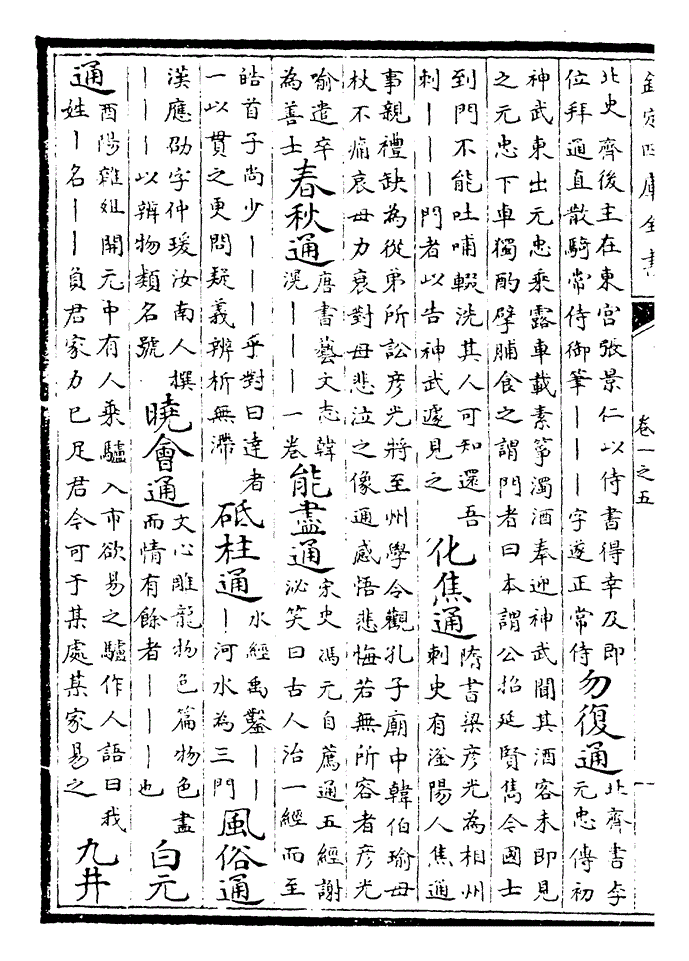 欽定四庫全書
卷一之五
北史齊後主在東宮張景仁以侍書得幸及即
位拜通直散騎常侍御筆丨丨丨字遂正常侍
勿復通
北齊書李
元忠傳初
神武東出元忠乘露車載素箏濁酒奉迎神武聞其酒客未即見
之元忠下車獨酌擘脯食之謂門者曰本謂公招延賢儁今國士
到門不能吐哺輟洗其人可知還吾
刺丨丨丨門者以告神武遽見之
化焦通
隋書梁彥光為相州
刺史有滏陽人焦通
事親禮缺為從弟所訟彥光將至州學令觀孔子廟中韓伯瑜母
杖不痛哀母力衰對母悲泣之像通感悟悲悔若無所容者彥光
喻遣卒
為善士
春秋通
唐書藝文志韓
滉丨丨丨一卷
能盡通
宋史馮元自薦通五經謝
泌笑曰古人治一經而至
皓首子尚少丨丨丨乎對曰達者
一以貫之更問疑義辨析無滯
砥柱通
水經禹鑿丨丨
丨河水為三門
風俗通
漢應劭字仲瑗汝南人撰
丨丨丨以辨物類名號
曉會通
文心雕龍物色篇物色盡
而情有餘者丨丨丨也
白元
通
酉陽雜俎開元中有人乘驢入市欲易之驢作人語曰我
姓丨名丨丨負君家力已足君今可于某處某家易之
九井